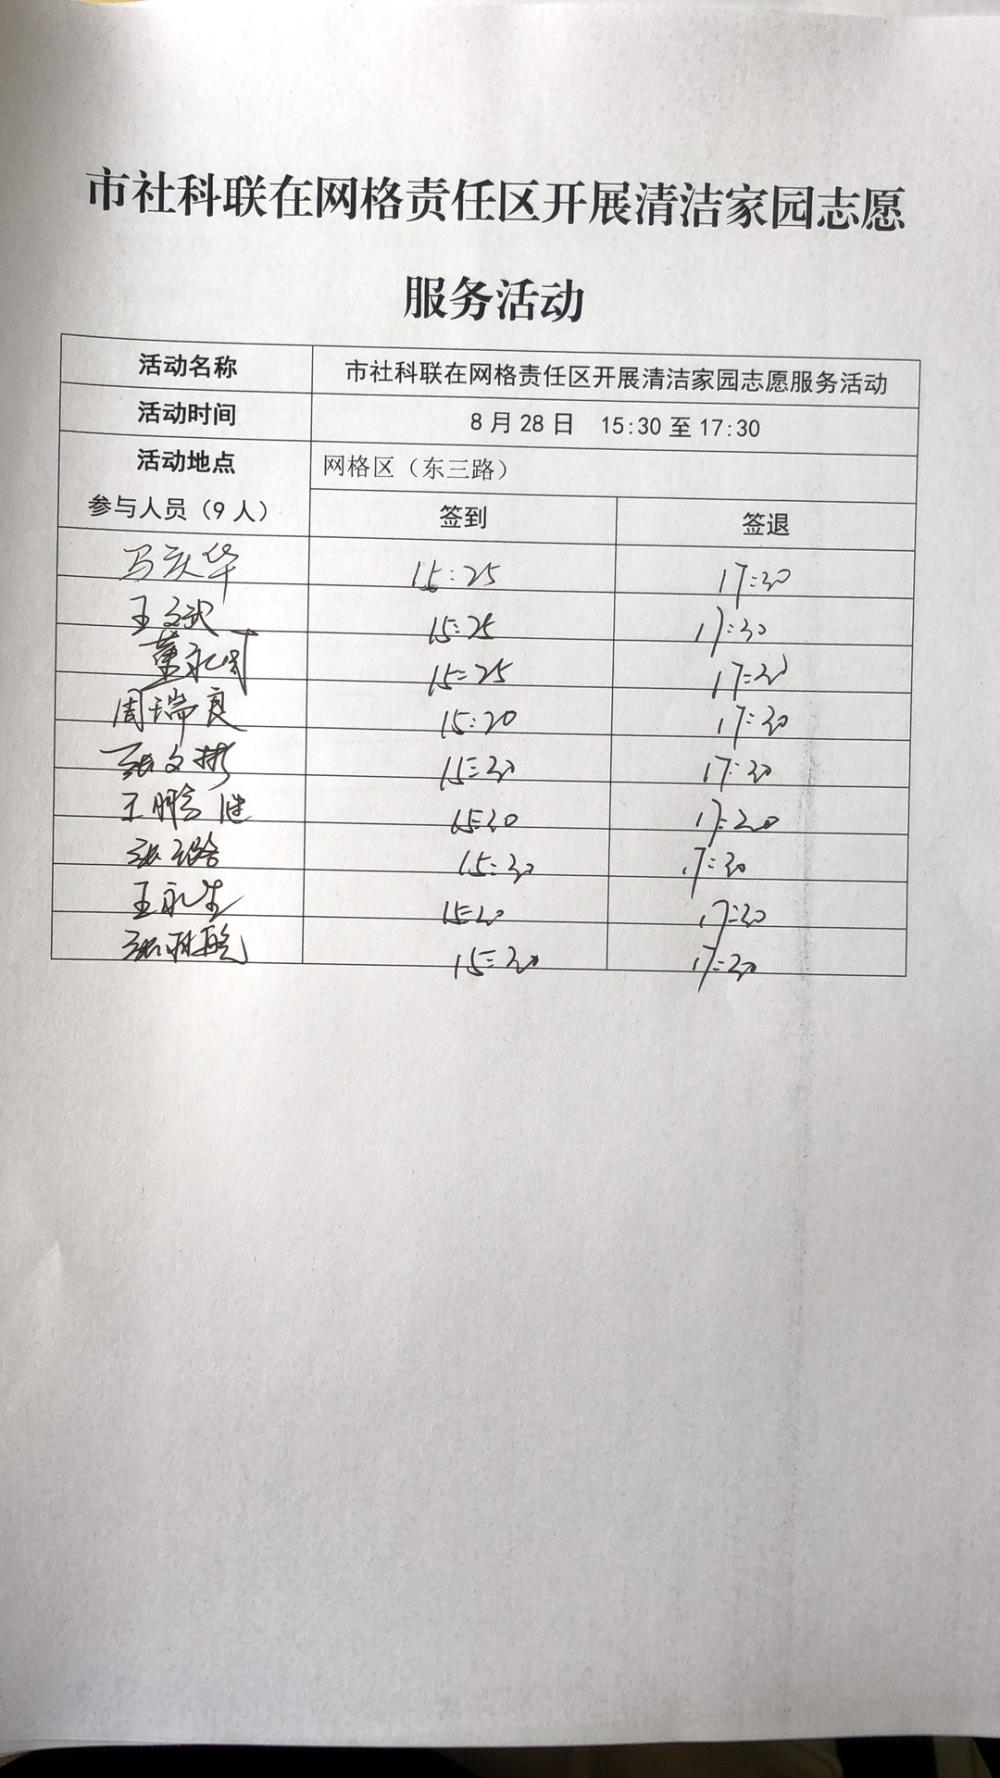 市社科联在网格责任区开展清洁家园志愿
服务活动
活动名称 市社科联在网格责任区开展清洁家园志愿服务活动
活动时间 8月28日 15:30至17:30
活动地点 网格区（东三路）
参与人员（9人） 签到 签退
马庆华 15:25 17:30
王文武 15:25 17:30
董永 15:25 17:30
周瑞良 15:20 17:30
张文彬 15:30 17:30
王鹏 15:20 17:30
张 15:30 17:30
王永生 15:20 17:30
张 15:30 17:30